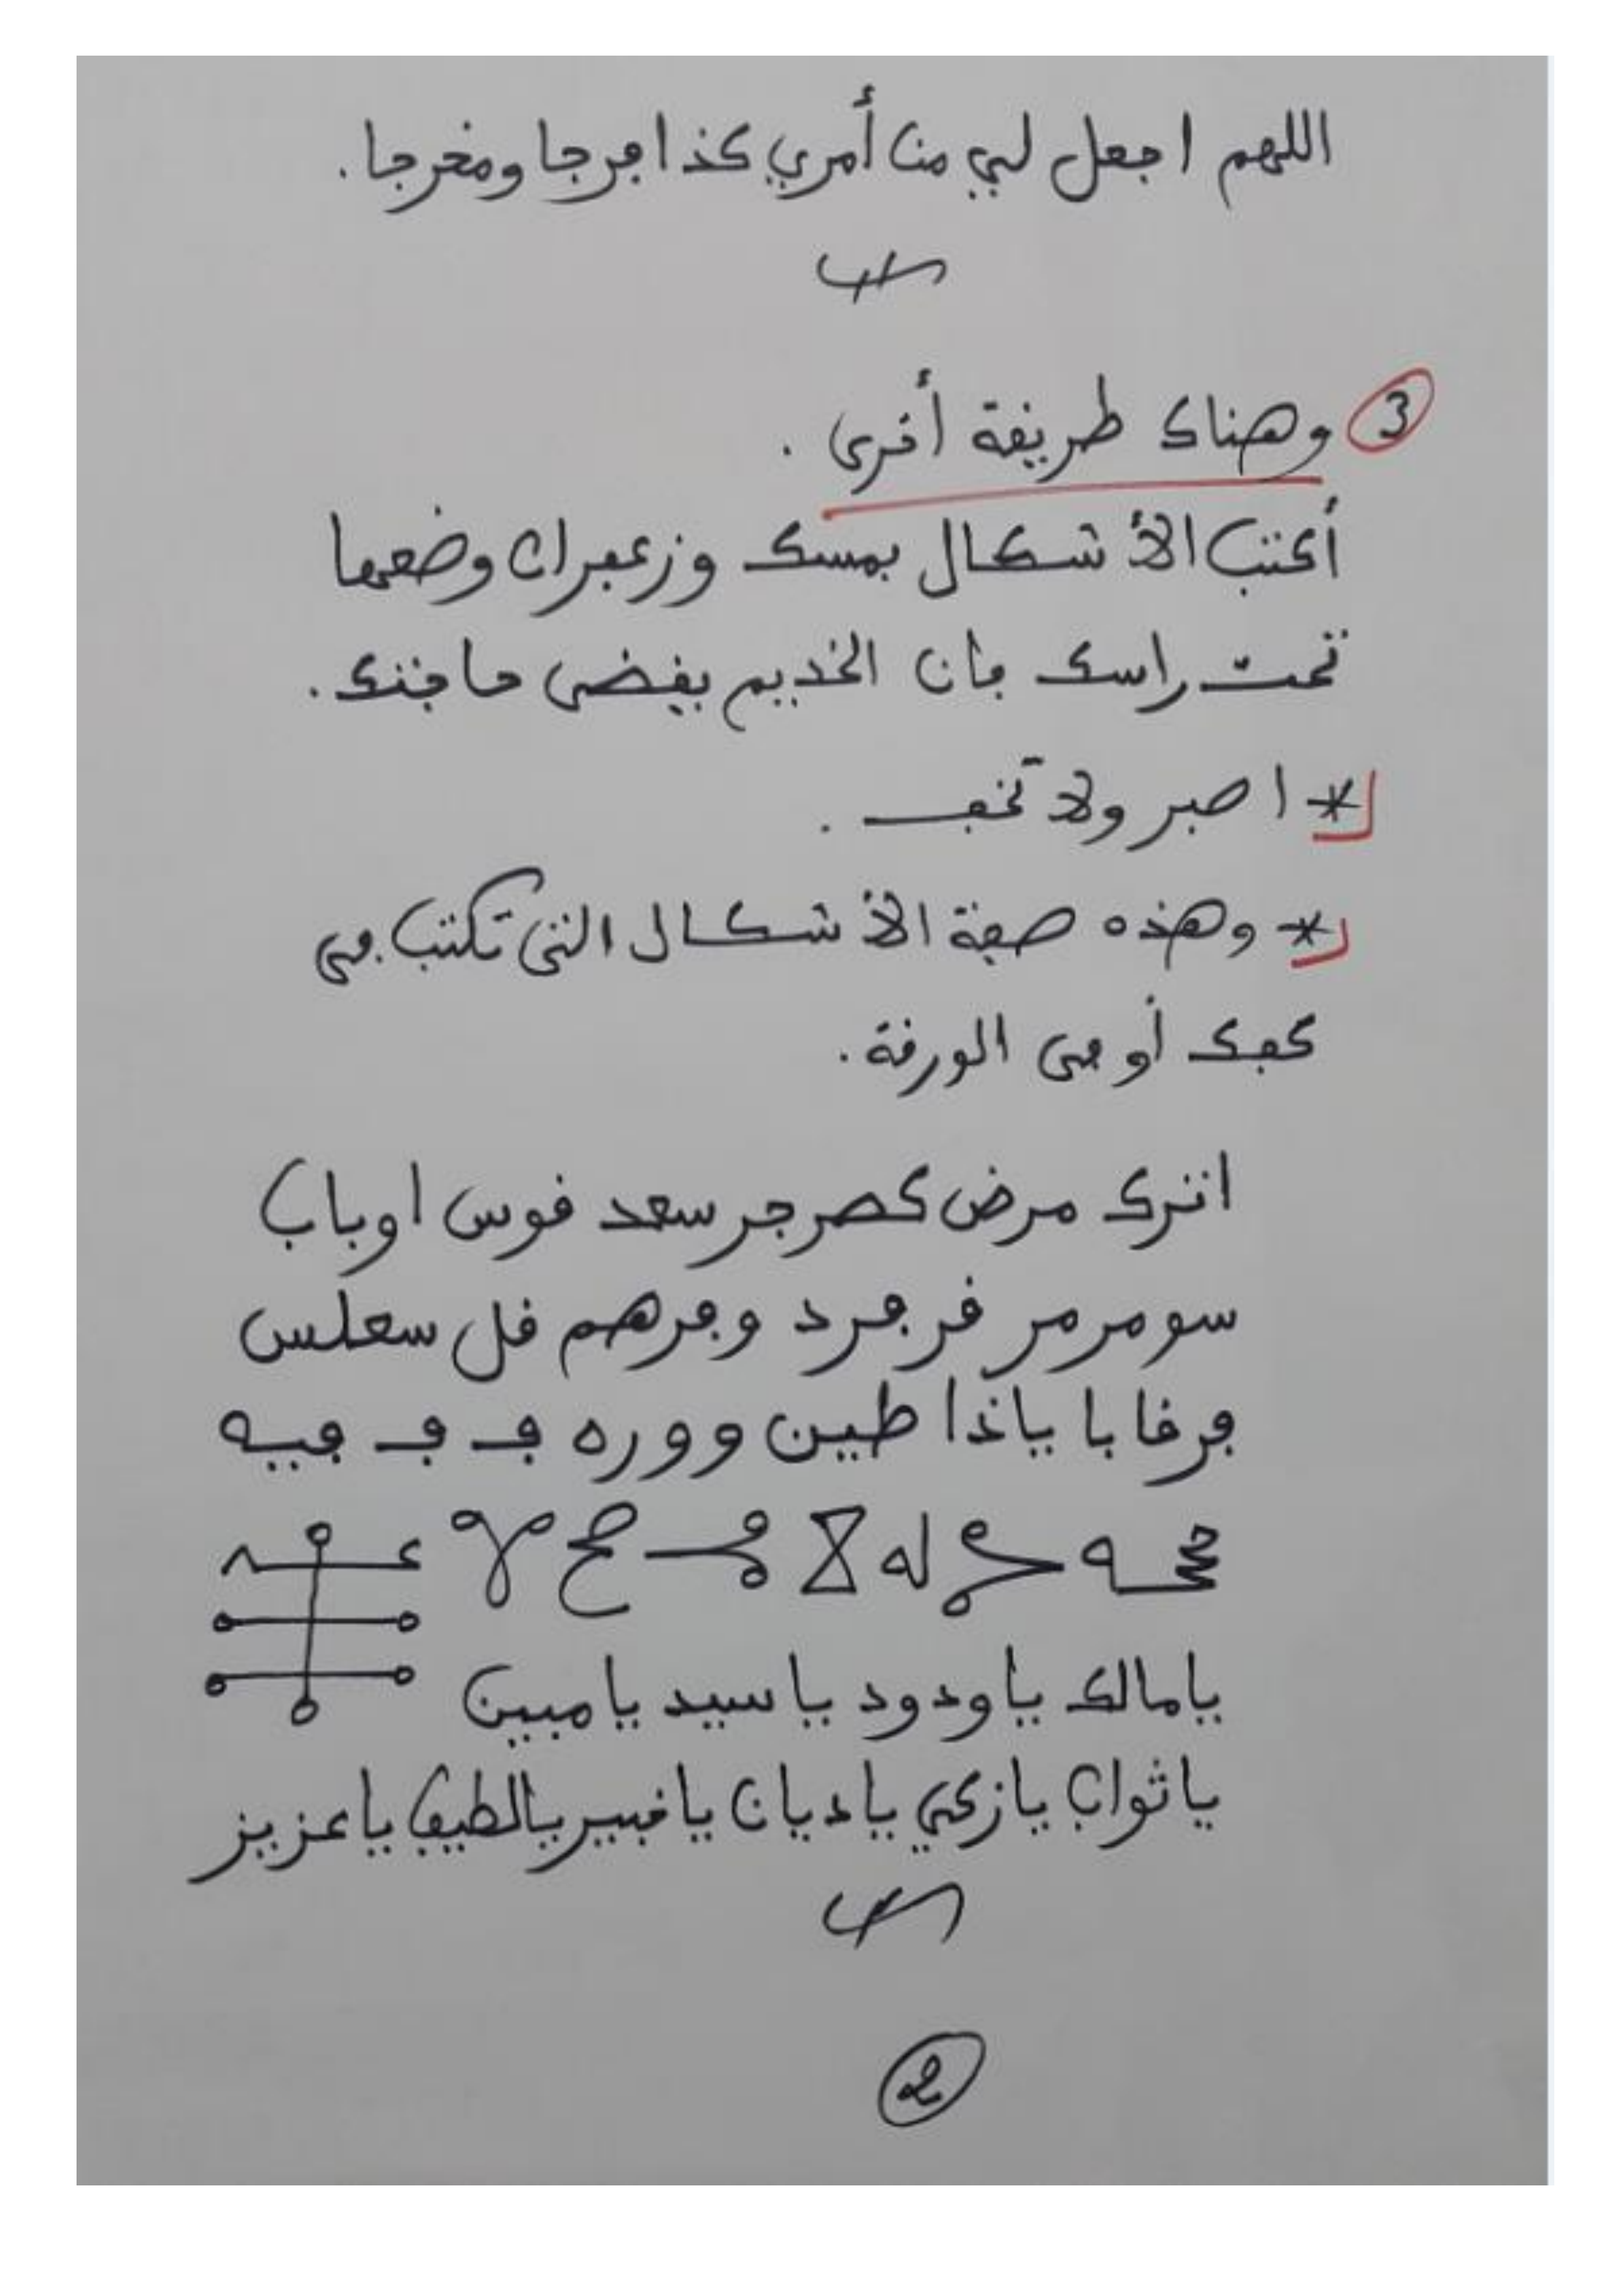 اللهم اجعل لي من أمري كذا فرجا ومخرجا.
3 وهناك طريقة أخرى.
أكتب الأشكال بمسك وزعفران وضعها
تحت راسك فإن الخديم يقضى حاجتك.
* اصبر ولا تخف.
* وهذه صفة الأشكال التى تكتب فى
كفك أو فى الورقة.
اترك مرض كصر جر سعد قوس اوباب
سومرمر قر فرد وفرهم قل سعلس
فرقا با ياذا طين ووره ف ف فيه
يامالك ياودود ياسيد يامبين
ياثواب يازكي ياديان ياخبير يالطيف ياعزيز
2